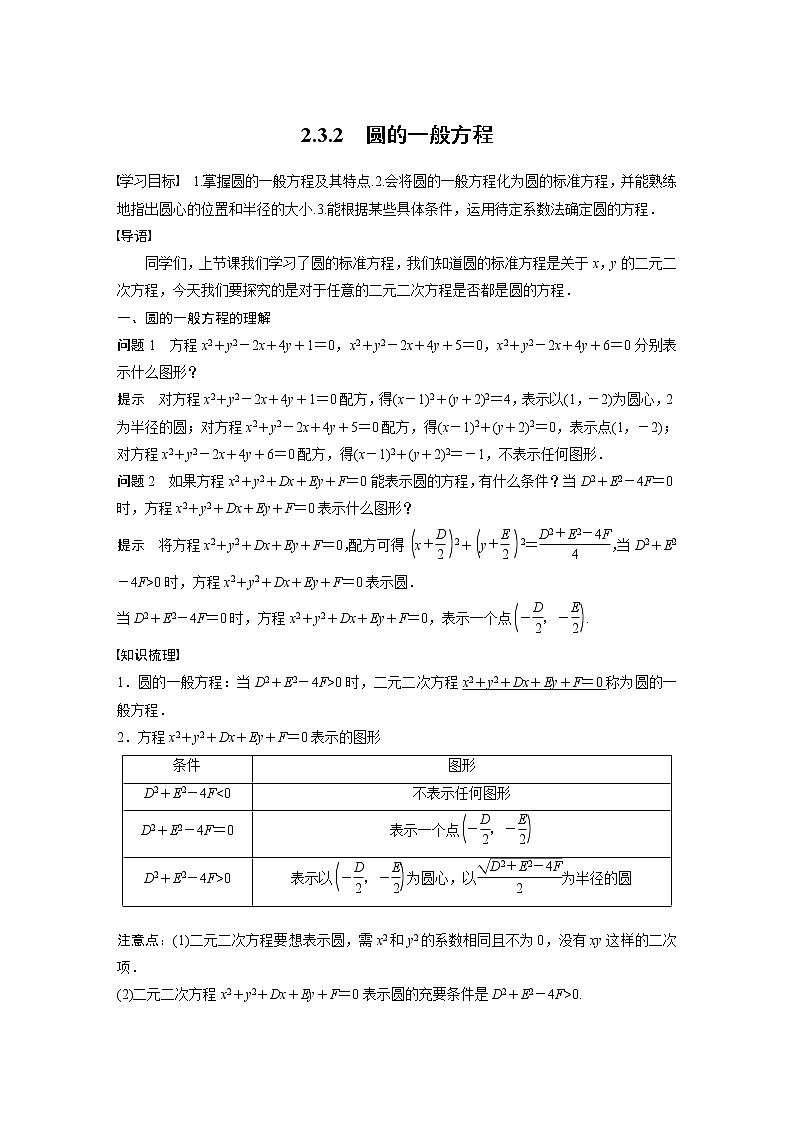 2.3.2 圆的一般方程
学习目标 1.掌握圆的一般方程及其特点.2.会将圆的一般方程化为圆的标准方程，并能熟练
地指出圆心的位置和半径的大小.3.能根据某些具体条件，运用待定系数法确定圆的方程.
导语
同学们，上节课我们学习了圆的标准方程，我们知道圆的标准方程是关于 x，y 的二元二
次方程，今天我们要探究的是对于任意的二元二次方程是否都是圆的方程.
一、圆的一般方程的理解
问题 1 方程 x²+y²-2x+4y+1=0，x²+y²-2x+4y+5=0，x²+y²-2x+4y+6=0 分别表
示什么图形？
提示 对方程 x²+y²-2x+4y+1=0 配方，得(x-1)²+(y+2)²=4，表示以(1，-2)为圆心，2
为半径的圆；对方程 x²+y²-2x+4y+5=0 配方，得(x-1)²+(y+2)²=0，表示点(1，-2)；
对方程 x²+y²-2x+4y+6=0 配方，得(x-1)²+(y+2)²=-1，不表示任何图形.
问题 2 如果方程 x²+y²+Dx+Ey+F=0 能表示圆的方程，有什么条件？当 D²+E²-4F=0
时，方程 x²+y²+Dx+Ey+F=0 表示什么图形？
提示 将方程 x²+y²+Dx+Ey+F=0，配方可得 (x+D/2)²+(y+E/2)²=(D²+E²-4F)/4，当 D²+E²
-4F>0 时，方程 x²+y²+Dx+Ey+F=0 表示圆.
当 D²+E²-4F=0 时，方程 x²+y²+Dx+Ey+F=0，表示一个点(-D/2，-E/2).
知识梳理
1．圆的一般方程：当 D²+E²-4F>0 时，二元二次方程 x²+y²+Dx+Ey+F=0 称为圆的一
般方程.
2．方程 x²+y²+Dx+Ey+F=0 表示的图形
条件 图形
D²+E²-4F<0 不表示任何图形
D²+E²-4F=0 表示一个点(-D/2，-E/2)
D²+E²-4F>0 表示以(-D/2，-E/2)为圆心，以√(D²+E²-4F)/2为半径的圆
注意点：(1)二元二次方程要想表示圆，需 x²和 y²的系数相同且不为 0，没有 xy 这样的二次
项.
(2)二元二次方程 x²+y²+Dx+Ey+F=0 表示圆的充要条件是 D²+E²-4F>0.